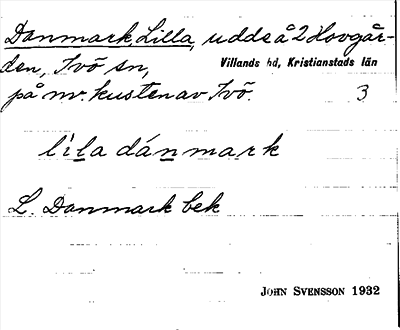 Danmark, Lilla, udde å 2 Hovgår-
den, Ivö sn, Villands hd, Kristianstads län
på nv. kusten av Ivö. 3
lila dánmark
L. Danmark bek
JOHN SVENSSON 1932